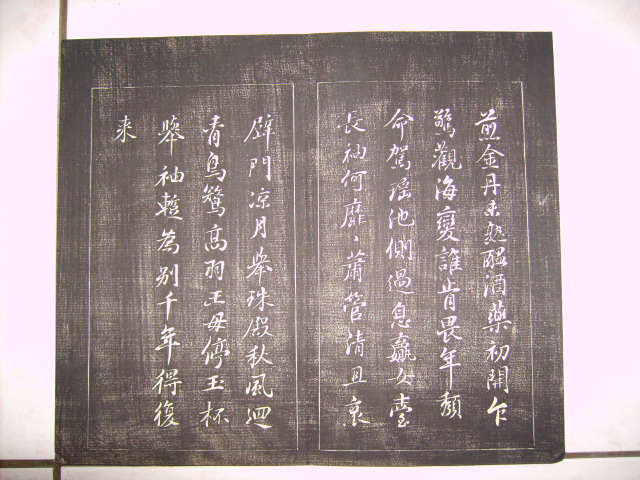 煎金丹未熟醒酒藥初開乍
驚觀海變誰肯畏年頹
命駕瑶池側過息嬴女臺
長袖何靡〻蕭管清且哀
璧門涼月舉珠殿秋風迴
青鳥鶩高羽王母停玉杯
舉袖蹔為别千年得復
来